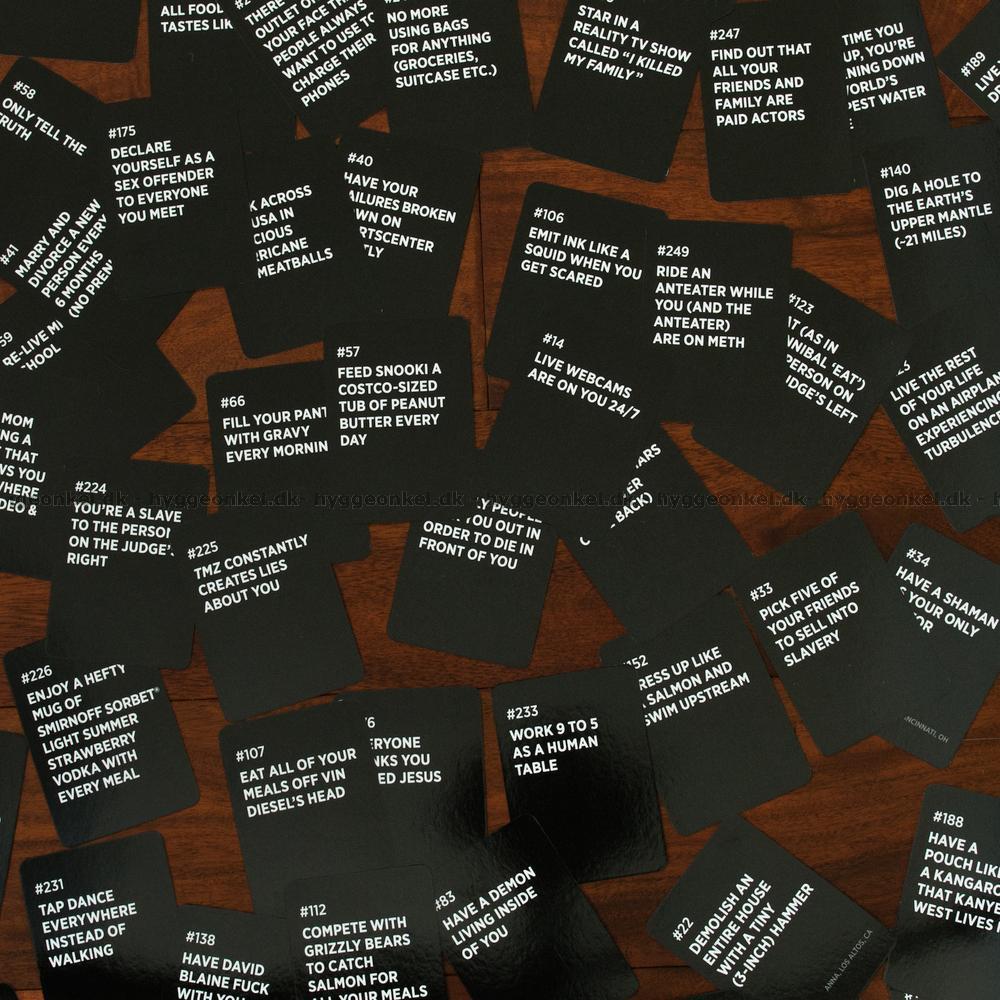 ALL FOOL
TASTES LIK
THERE
OUTLET O
YOUR FACE TH
PEOPLE ALWAYS
WANT TO USE TO
CHARGE THEIR
PHONES
NO MORE
USING BAGS
FOR ANYTHING
(GROCERIES,
SUITCASE ETC.)
STAR IN A
REALITY TV SHOW
CALLED “I KILLED
MY FAMILY”
#247
FIND OUT THAT
ALL YOUR
FRIENDS AND
FAMILY ARE
PAID ACTORS
TIME YOU
UP, YOU’RE
NING DOWN
ORLD’S
EST WATER
#189
LIVE
DE
#58
ONLY TELL THE
RUTH
#175
DECLARE
YOURSELF AS A
SEX OFFENDER
TO EVERYONE
YOU MEET
ACROSS
USA IN
CIOUS
RRICANE
MEATBALLS
#40
HAVE YOUR
AILURES BROKEN
WN ON
RTSCENTER
LY
#140
DIG A HOLE TO
THE EARTH’S
UPPER MANTLE
(~21 MILES)
#41
MARRY AND
DIVORCE A NEW
PERSON EVERY
6 MONTHS
(NO PREN
#106
EMIT INK LIKE A
SQUID WHEN YOU
GET SCARED
#249
RIDE AN
ANTEATER WHILE
YOU (AND THE
ANTEATER)
ARE ON METH
#123
AT (AS IN
NNIBAL ‘EAT’)
PERSON ON
UDGE’S LEFT
59
RE-LIVE MI
HOOL
#14
LIVE WEBCAMS
ARE ON YOU 24/7
LIVE THE REST
OF YOUR LIFE
ON AN AIRPLAN
EXPERIENCING
TURBULENCE
#66
FILL YOUR PANT
WITH GRAVY
EVERY MORNIN
#57
FEED SNOOKI A
COSTCO-SIZED
TUB OF PEANUT
BUTTER EVERY
DAY
MOM
NG A
K THAT
WS YOU
WHERE
DEO &
#224
YOU’RE A SLAVE
TO THE PERSON
ON THE JUDGE’S
RIGHT
#225
TMZ CONSTANTLY
CREATES LIES
ABOUT YOU
Y PEOPLE
YOU OUT IN
ORDER TO DIE IN
FRONT OF YOU
ARS
ER
BACK)
hyggeonkel.dk - hyggeonkel.dk - hyggeonkel.dk - hyggeonkel.dk - hyggeonkel.dk - hyggeonkel.dk
#33
PICK FIVE OF
YOUR FRIENDS
TO SELL INTO
SLAVERY
#34
HAVE A SHAMAN
S YOUR ONLY
OR
NCINNATI, OH
#226
ENJOY A HEFTY
MUG OF
SMIRNOFF SORBET®
LIGHT SUMMER
STRAWBERRY
VODKA WITH
EVERY MEAL
152
RESS UP LIKE
SALMON AND
SWIM UPSTREAM
#107
EAT ALL OF YOUR
MEALS OFF VIN
DIESEL’S HEAD
6
ERYONE
NKS YOU
ED JESUS
#233
WORK 9 TO 5
AS A HUMAN
TABLE
#188
HAVE A
POUCH LIKE
A KANGAROO
THAT KANYE
WEST LIVES I
#231
TAP DANCE
EVERYWHERE
INSTEAD OF
WALKING
#138
HAVE DAVID
BLAINE FUCK
WITH YOU
#112
COMPETE WITH
GRIZZLY BEARS
TO CATCH
SALMON FOR
ALL YOUR MEALS
#83
HAVE A DEMON
LIVING INSIDE
OF YOU
#22
DEMOLISH AN
ENTIRE HOUSE
WITH A TINY
(3-INCH) HAMMER
ANNA, LOS ALTOS, CA